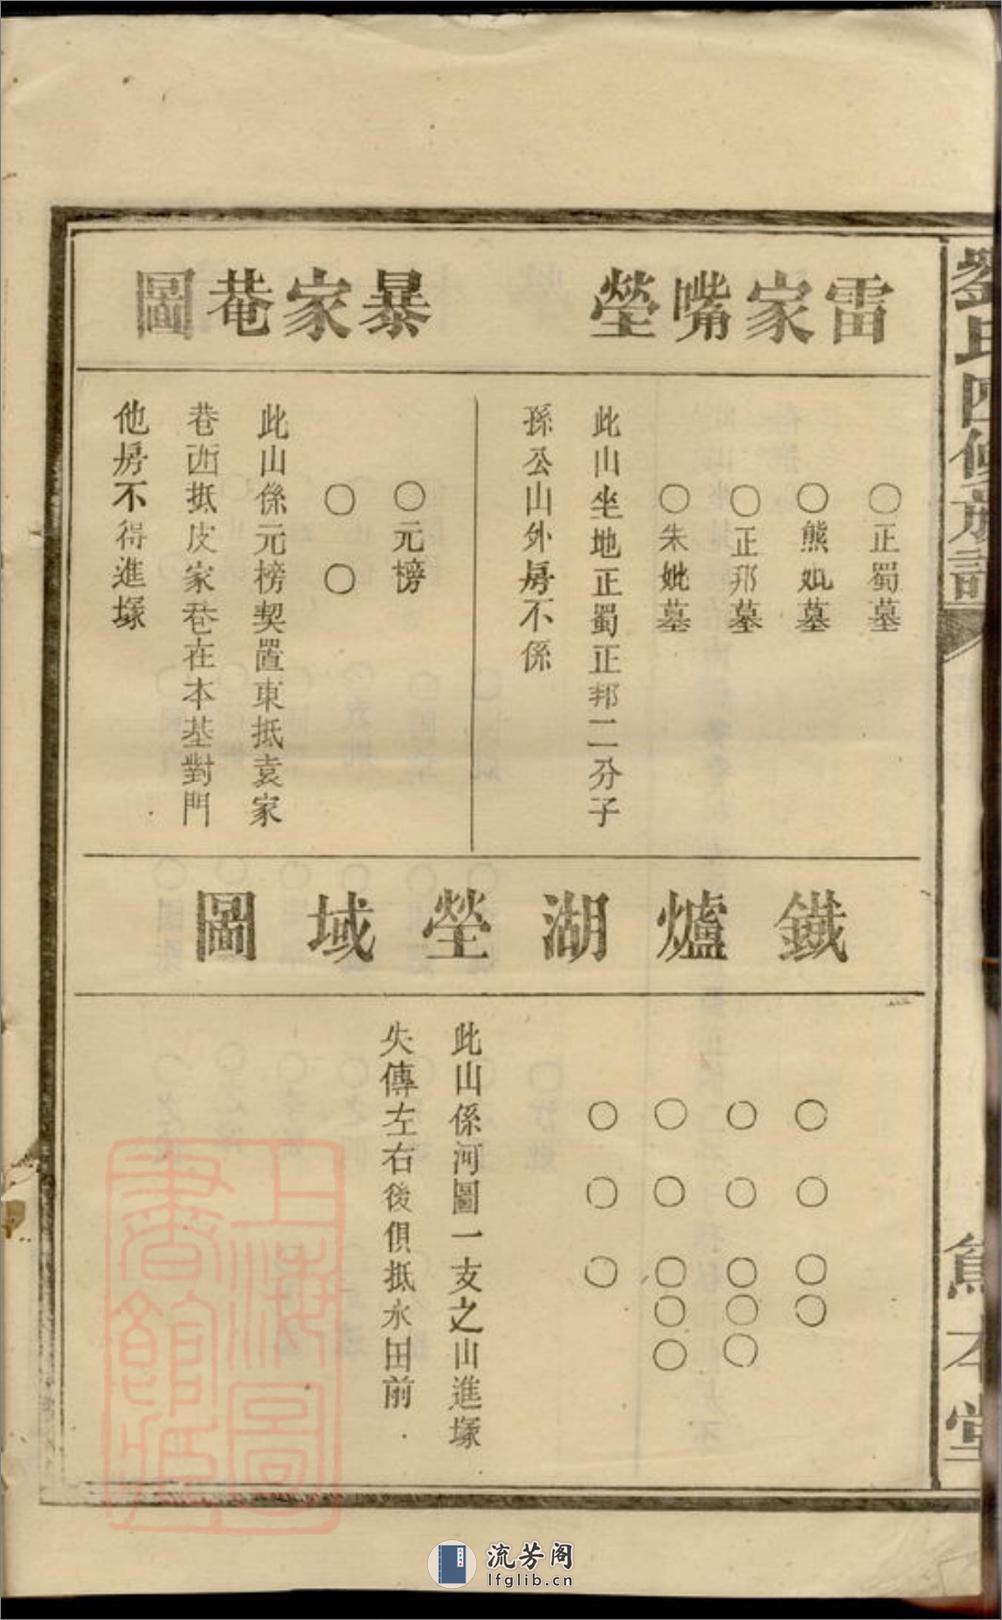 劉氏四修族譜
本堂
雷家嘴塋
〇正蜀墓
〇熊妣墓
〇正邦墓
〇朱妣墓
此山坐地正蜀正邦二分子
孫公山外房不係
暴家菴圖
〇元榜
〇〇
此山係元榜契置東抵袁家
巷西抵皮家巷在本基對門
他房不得進塚
鐵爐湖塋域圖
〇〇〇〇
〇〇〇〇〇
〇〇〇〇〇
〇〇〇
此山係河圖一支之山進塚
失傳左右後俱抵水田前
上海圖書館藏
流芳阁
lfglib.cn